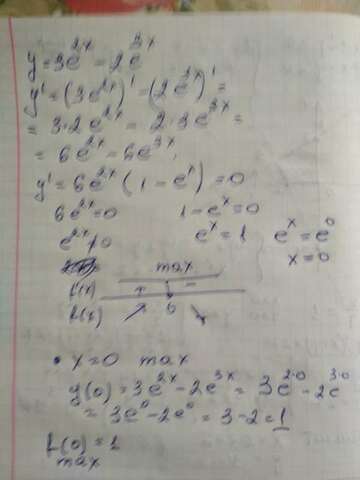 y = 3e^{2x} - 2e^{3x}
y' = (3e^{2x})' - (2e^{3x})' =
= 3·2e^{2x} - 2·3e^{3x} =
= 6e^{2x} - 6e^{3x};
y' = 6e^{2x} (1 - e^x) = 0
6e^{2x} = 0 1 - e^x = 0
e^{2x} ≠ 0 e^x = 1 e^x = e^0
x = 0
max
f'(x) + -
f(x) ↗ 0 ↘
• x = 0 max
y(0) = 3e^{2x} - 2e^{3x} = 3e^{2·0} - 2e^{3·0}
= 3e^0 - 2e^0 = 3 - 2 = 1
f(0) = 1
max